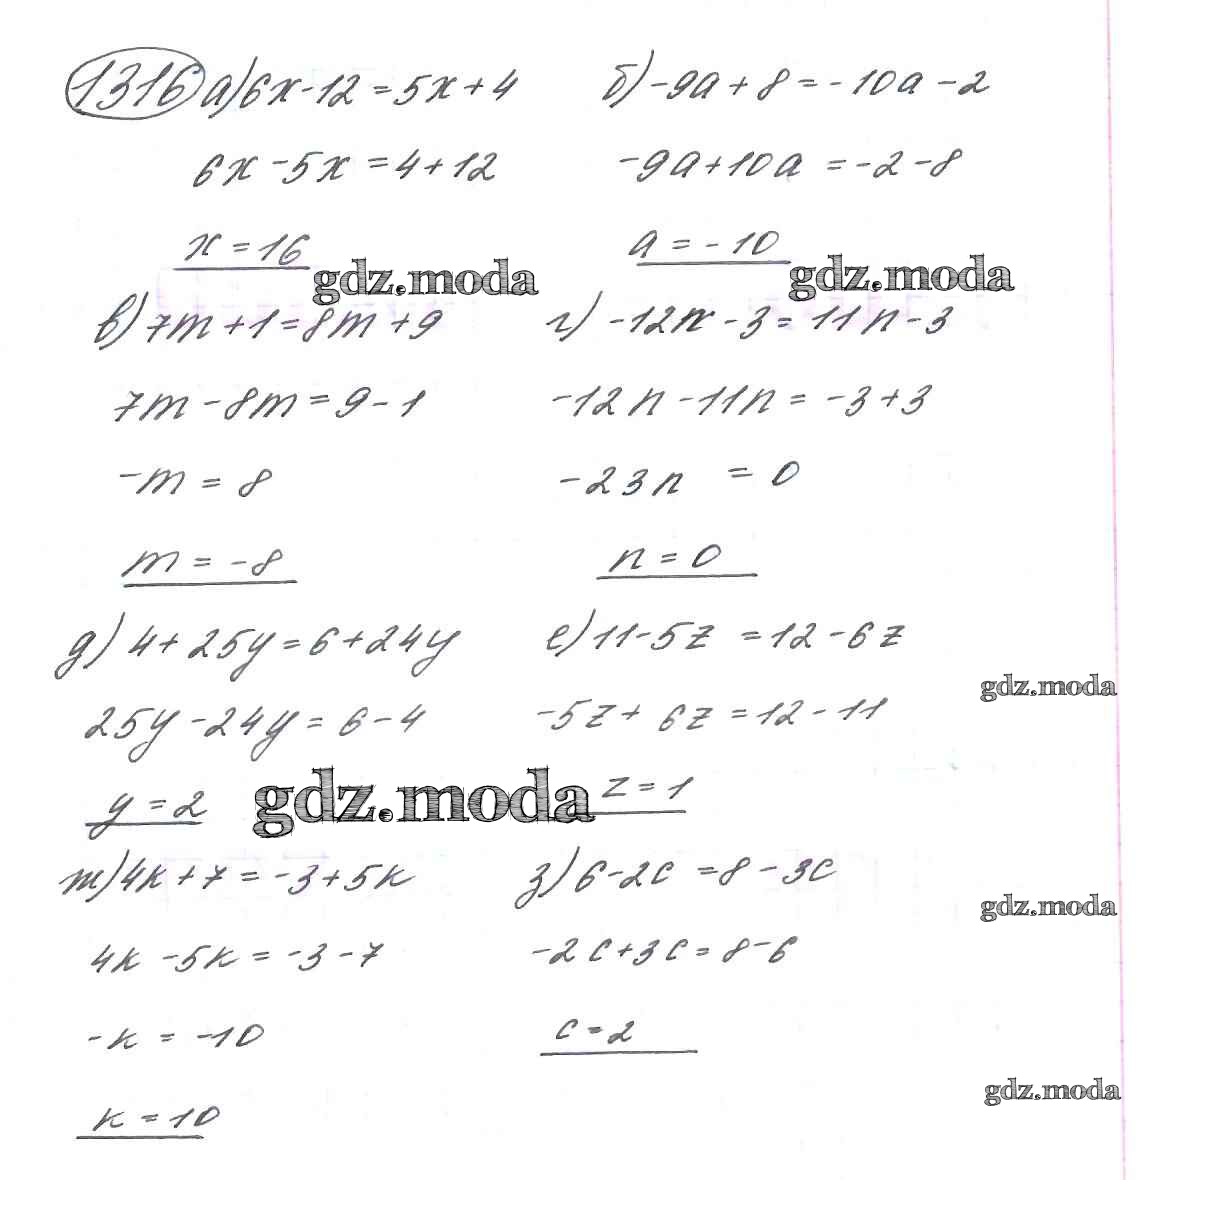 1316 а) 6x - 12 = 5x + 4
6x - 5x = 4 + 12
x = 16
gdz.moda
б) -9a + 8 = -10a - 2
-9a + 10a = -2 - 8
a = -10
gdz.moda
в) 7m + 1 = 8m + 9
7m - 8m = 9 - 1
-m = 8
m = -8
г) -12n - 3 = 11n - 3
-12n - 11n = -3 + 3
-23n = 0
n = 0
д) 4 + 25y = 6 + 24y
25y - 24y = 6 - 4
y = 2
gdz.moda
е) 11 - 5z = 12 - 6z
-5z + 6z = 12 - 11
z = 1
gdz.moda
ж) 4k + 7 = -3 + 5k
4k - 5k = -3 - 7
-k = -10
k = 10
з) 6 - 2c = 8 - 3c
-2c + 3c = 8 - 6
c = 2
gdz.moda
gdz.moda